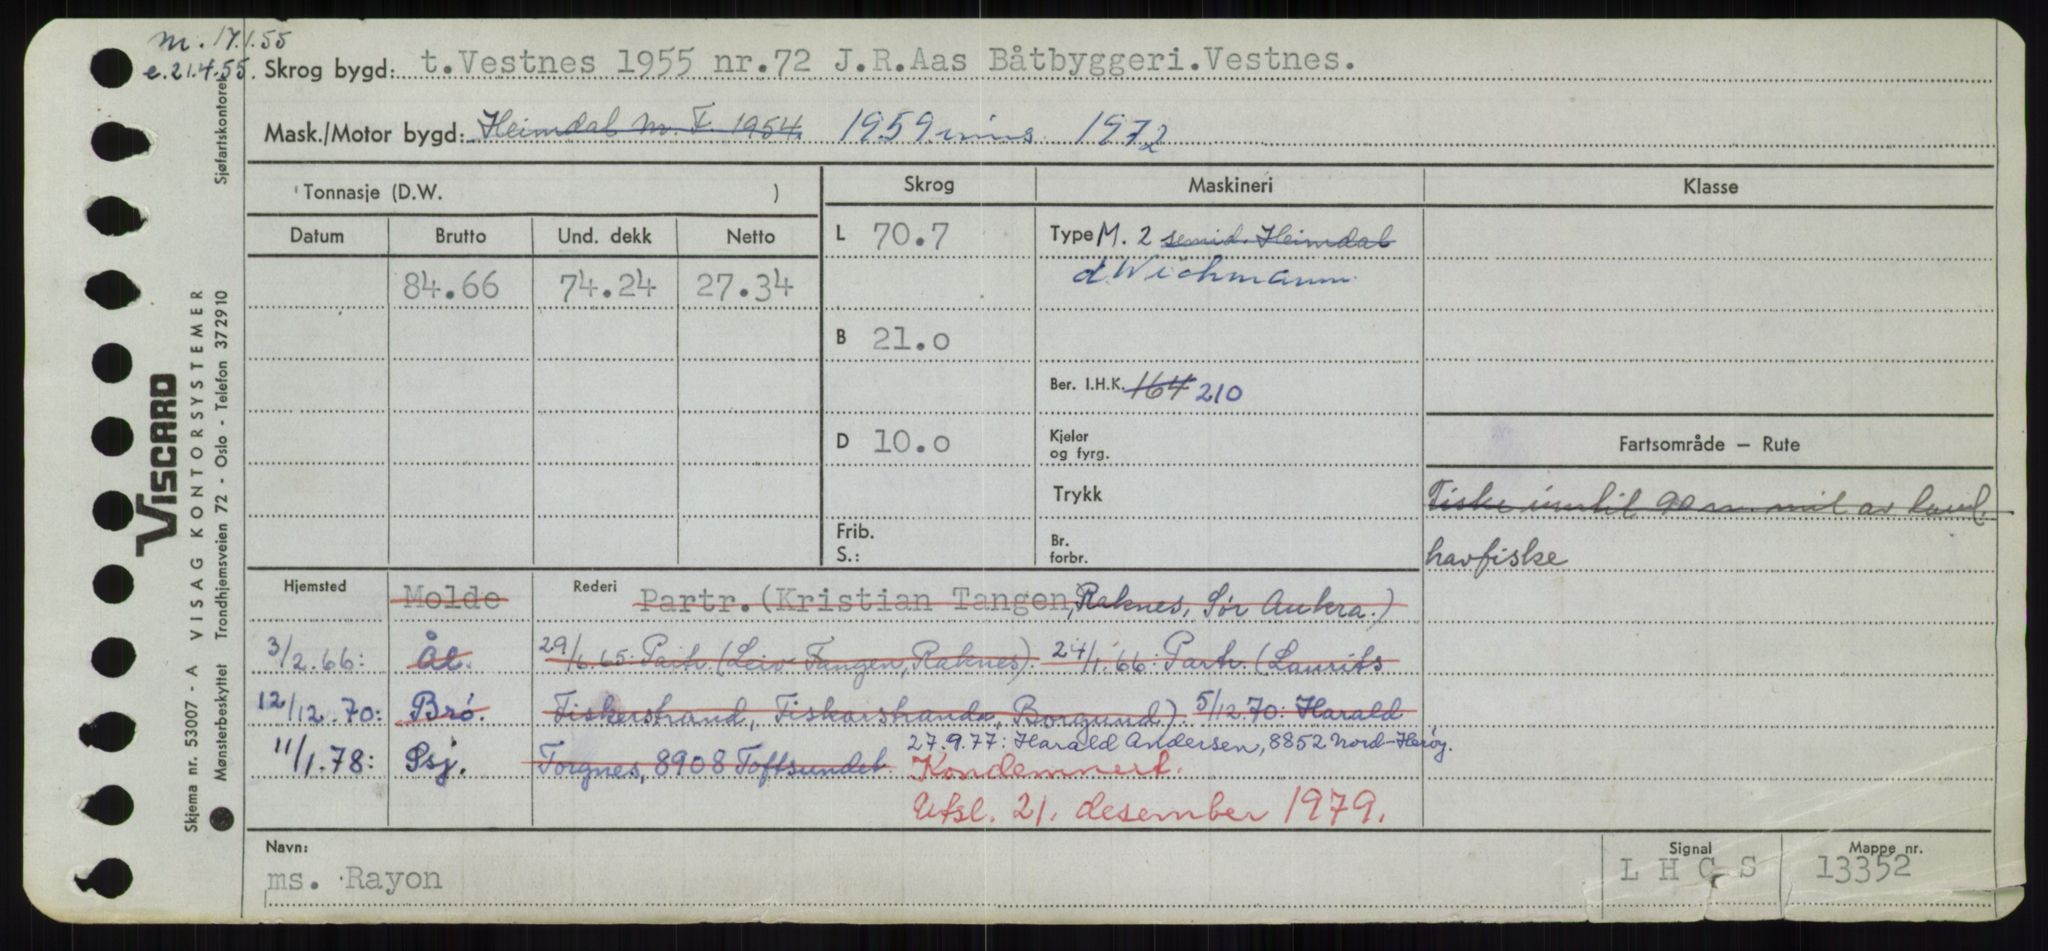 m. 17.1.55
e. 21.4.55.
Skrog bygd: t.Vestnes 1955 nr.72 J.R.Aas Båtbyggeri.Vestnes.
Mask./Motor bygd: Heimdal M.F. 1954. 1959 1972
Tonnasje (D.W. )
Skrog
Maskineri
Klasse
Datum Brutto Und. dekk Netto
84.66 74.24 27.34
L 70.7
B 21.0
D 10.0
Frib.
S.:
Type M. 2 semid. Heimdal
d Wichmann.
Ber. I.H.K. 164 210
Kjeler
og fyrg.
Trykk
Br.
forbr.
Fartsområde – Rute
Fiske inntil 90 n. mil av land.
havfiske
Hjemsted Molde Rederi Partr.(Kristian Tangen, Raknes, Sør Aukra.)
3/2.66: Ål. 29/6.65: Partr. (Leiv Tangen, Raknes). 24/1.66: Partr. (Laurits
12/12.70: Brø. Fiskerstrand, Fiskarstranda, Borgund) 5/12.70: Harald
11/1.78: Psj. Torgnes, 8908 Toftsundet 27.9.77: Harald Andersen, 8852 Nord-Herøy.
Kondemnert.
Utsl. 21. desember 1979.
Navn:
ms. Rayon
Signal
L H C S
Mappe nr.
13352
VISCARD
Skjema nr. 53007 - A VISAG KONTORSYSTEMER
Mønsterbeskyttet Trondhjemsveien 72 - Oslo - Telefon 372910
Sjøfartskontoret